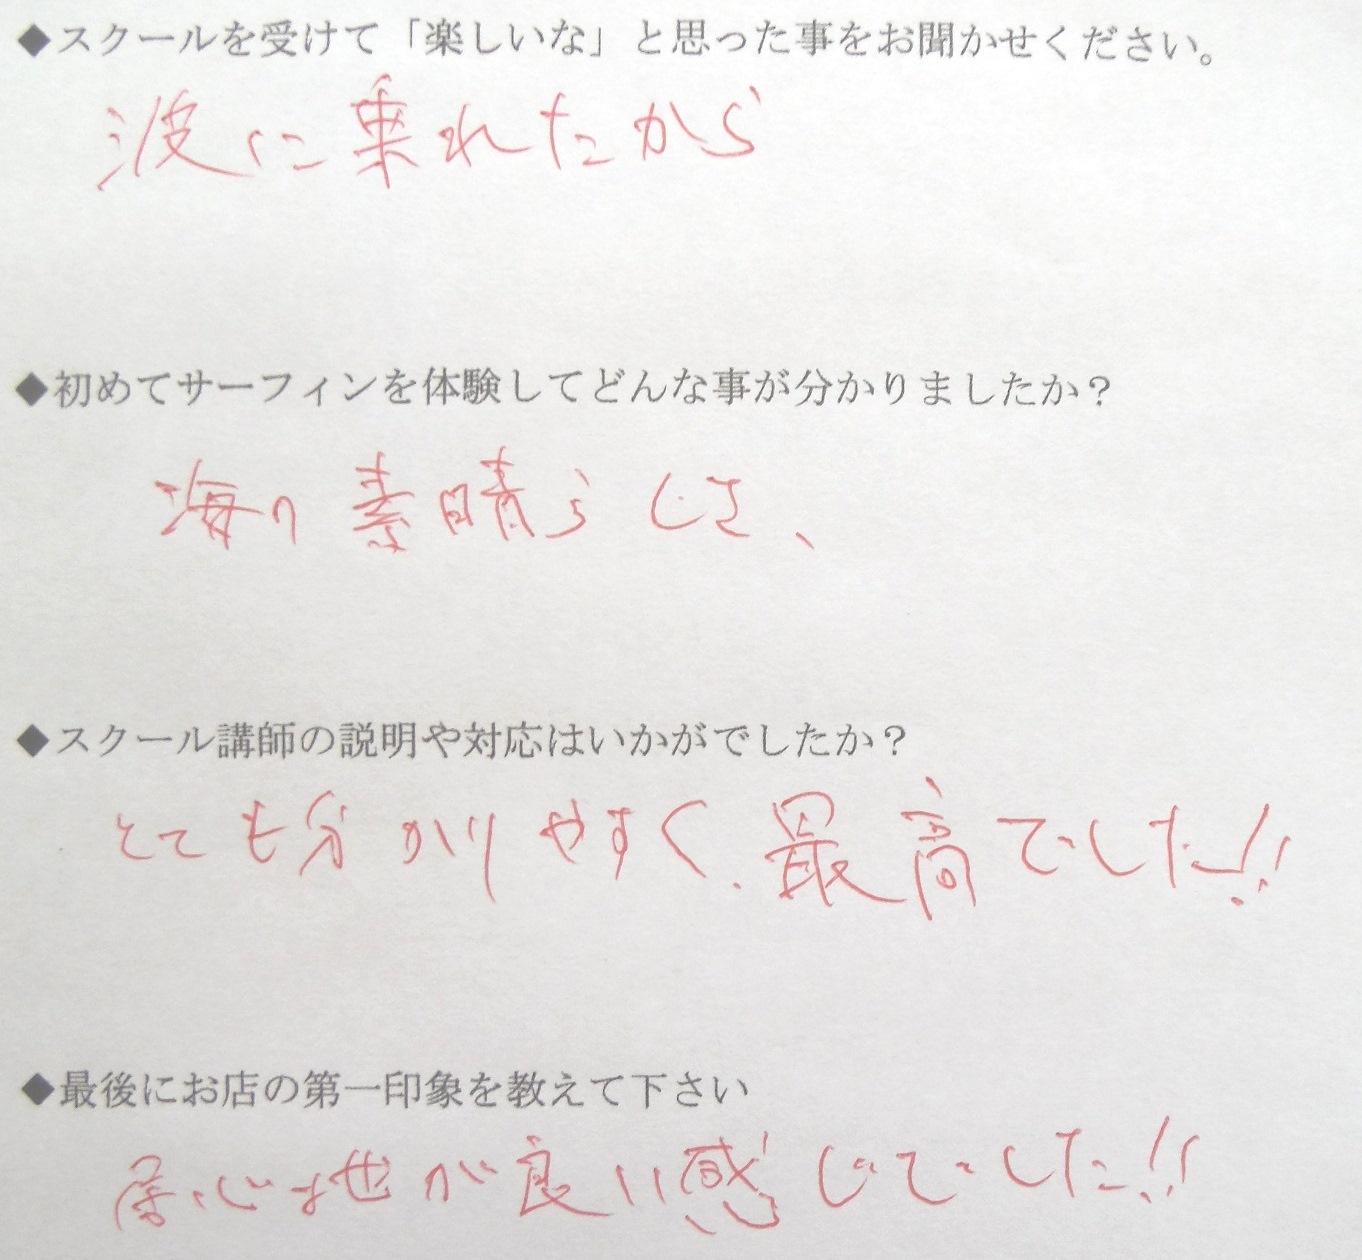 ◆スクールを受けて「楽しいな」と思った事をお聞かせください。
波に乗れたから
◆初めてサーフィンを体験してどんな事が分かりましたか？
海の素晴らしさ、
◆スクール講師の説明や対応はいかがでしたか？
とても分かりやすく、最高でした!!
◆最後にお店の第一印象を教えて下さい
居心地が良い感じでした!!